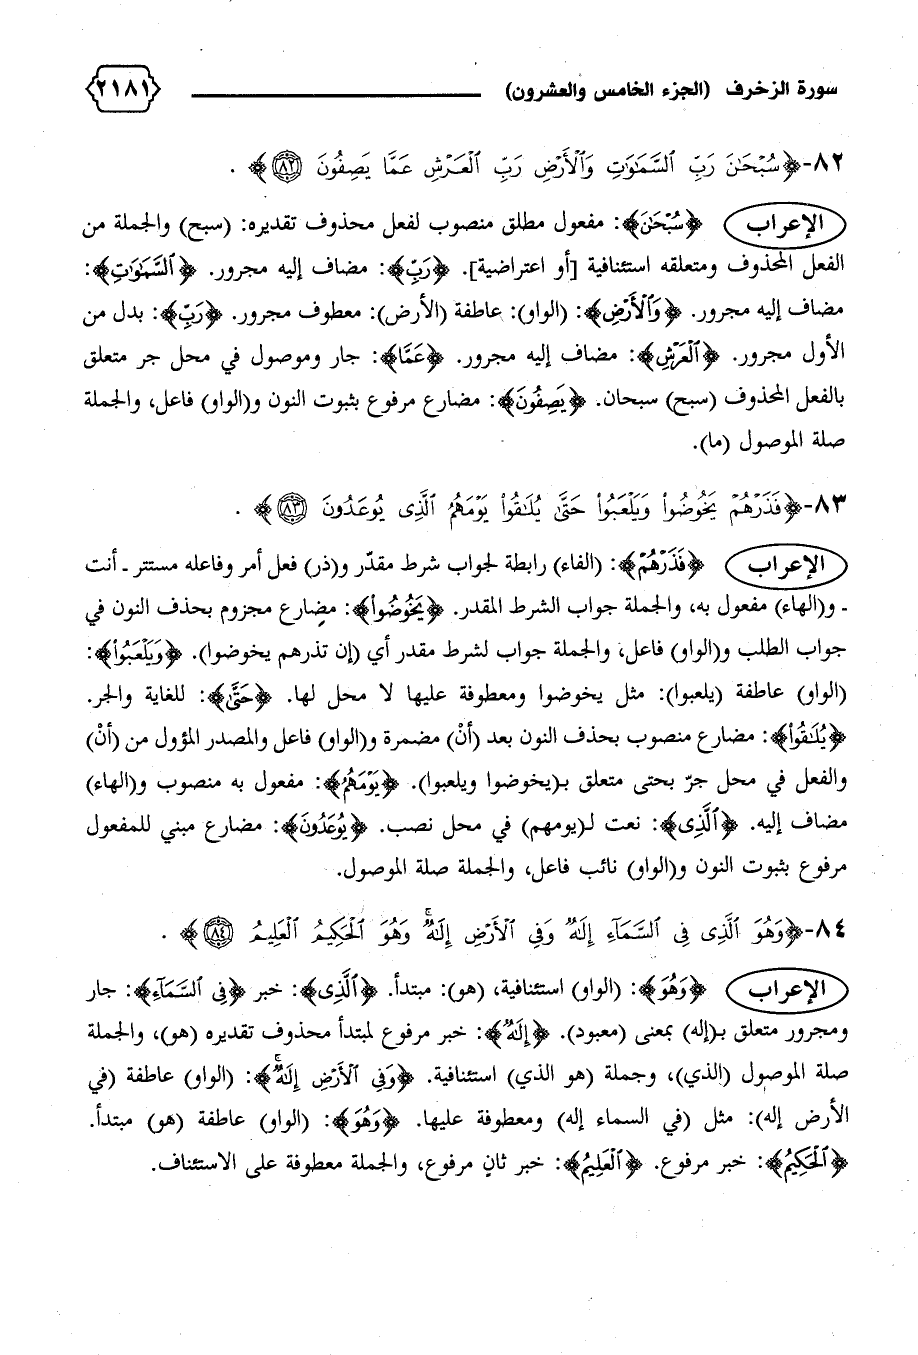 سورة الزخرف (الجزء الخامس والعشرون)
٢١٨١
٨٢-﴿سُبْحَٰنَ رَبِّ ٱلسَّمَٰوَٰتِ وَٱلْأَرْضِ رَبِّ ٱلْعَرْشِ عَمَّا يَصِفُونَ ٨٢﴾ .
الإعراب ﴿سُبْحَٰنَ﴾: مفعول مطلق منصوب لفعل محذوف تقديره: (سبح) والجملة من
الفعل المحذوف ومتعلقه استئنافية [أو اعتراضية]. ﴿رَبِّ﴾: مضاف إليه مجرور. ﴿ٱلسَّمَٰوَٰتِ﴾:
مضاف إليه مجرور. ﴿وَٱلْأَرْضِ﴾: (الواو): عاطفة (الأرض): معطوف مجرور. ﴿رَبِّ﴾: بدل من
الأول مجرور. ﴿ٱلْعَرْشِ﴾: مضاف إليه مجرور. ﴿عَمَّا﴾: جار وموصول في محل جر متعلق
بالفعل المحذوف (سبح) سبحان. ﴿يَصِفُونَ﴾: مضارع مرفوع بثبوت النون و(الواو) فاعل، والجملة
صلة الموصول (ما).
٨٣-﴿فَذَرْهُمْ يَخُوضُوا۟ وَيَلْعَبُوا۟ حَتَّىٰ يُلَٰقُوا۟ يَوْمَهُمُ ٱلَّذِى يُوعَدُونَ ٨٣﴾ .
الإعراب ﴿فَذَرْهُمْ﴾: (الفاء) رابطة لجواب شرط مقدّر و(ذر) فعل أمر وفاعله مستتر ـ أنت
ـ و(الهاء) مفعول به، والجملة جواب الشرط المقدر. ﴿يَخُوضُوا۟﴾: مضارع مجزوم بحذف النون في
جواب الطلب و(الواو) فاعل، والجملة جواب لشرط مقدر أي (إن تذرهم يخوضوا). ﴿وَيَلْعَبُوا۟﴾:
(الواو) عاطفة (يلعبوا): مثل يخوضوا ومعطوفة عليها لا محل لها. ﴿حَتَّىٰ﴾: للغاية والجر.
﴿يُلَٰقُوا۟﴾: مضارع منصوب بحذف النون بعد (أنْ) مضمرة و(الواو) فاعل والمصدر المؤول من (أنْ)
والفعل في محل جرّ بحتى متعلق بـ(يخوضوا ويلعبوا). ﴿يَوْمَهُمُ﴾: مفعول به منصوب و(الهاء)
مضاف إليه. ﴿ٱلَّذِى﴾: نعت لـ(يومهم) في محل نصب. ﴿يُوعَدُونَ﴾: مضارع مبني للمفعول
مرفوع بثبوت النون و(الواو) نائب فاعل، والجملة صلة الموصول.
٨٤-﴿وَهُوَ ٱلَّذِى فِى ٱلسَّمَآءِ إِلَٰهٌ وَفِى ٱلْأَرْضِ إِلَٰهٌ ۚ وَهُوَ ٱلْحَكِيمُ ٱلْعَلِيمُ ٨٤﴾ .
الإعراب ﴿وَهُوَ﴾: (الواو) استئنافية، (هو): مبتدأ. ﴿ٱلَّذِى﴾: خبر ﴿فِى ٱلسَّمَآءِ﴾: جار
ومجرور متعلق بـ(إله) بمعنى (معبود). ﴿إِلَٰهٌ﴾: خبر مرفوع لمبتدأ محذوف تقديره (هو)، والجملة
صلة الموصول (الذي)، وجملة (هو الذي) استئنافية. ﴿وَفِى ٱلْأَرْضِ إِلَٰهٌ ۚ﴾: (الواو) عاطفة (في
الأرض إله): مثل (في السماء إله) ومعطوفة عليها. ﴿وَهُوَ﴾: (الواو) عاطفة (هو) مبتدأ.
﴿ٱلْحَكِيمُ﴾: خبر مرفوع. ﴿ٱلْعَلِيمُ﴾: خبر ثانٍ مرفوع، والجملة معطوفة على الاستئناف.